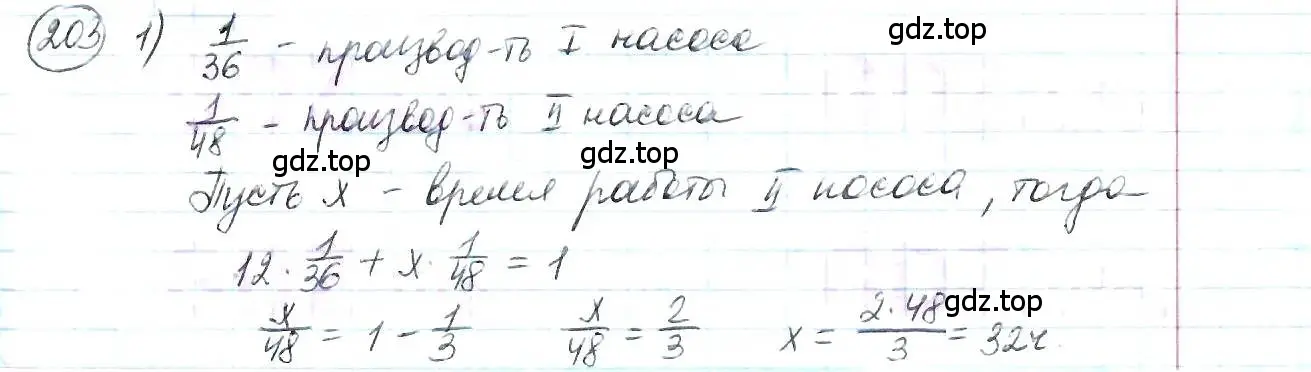 203 1) 1/36 - производ-ть I насоса
gdz.top
1/48 - производ-ть II насоса
gdz.top
gdz.top
Пусть x - время работы II насоса, тогда
12 · 1/36 + x · 1/48 = 1
gdz.top
x/48 = 1 - 1/3 x/48 = 2/3 x = 2·48/3 = 32ч.